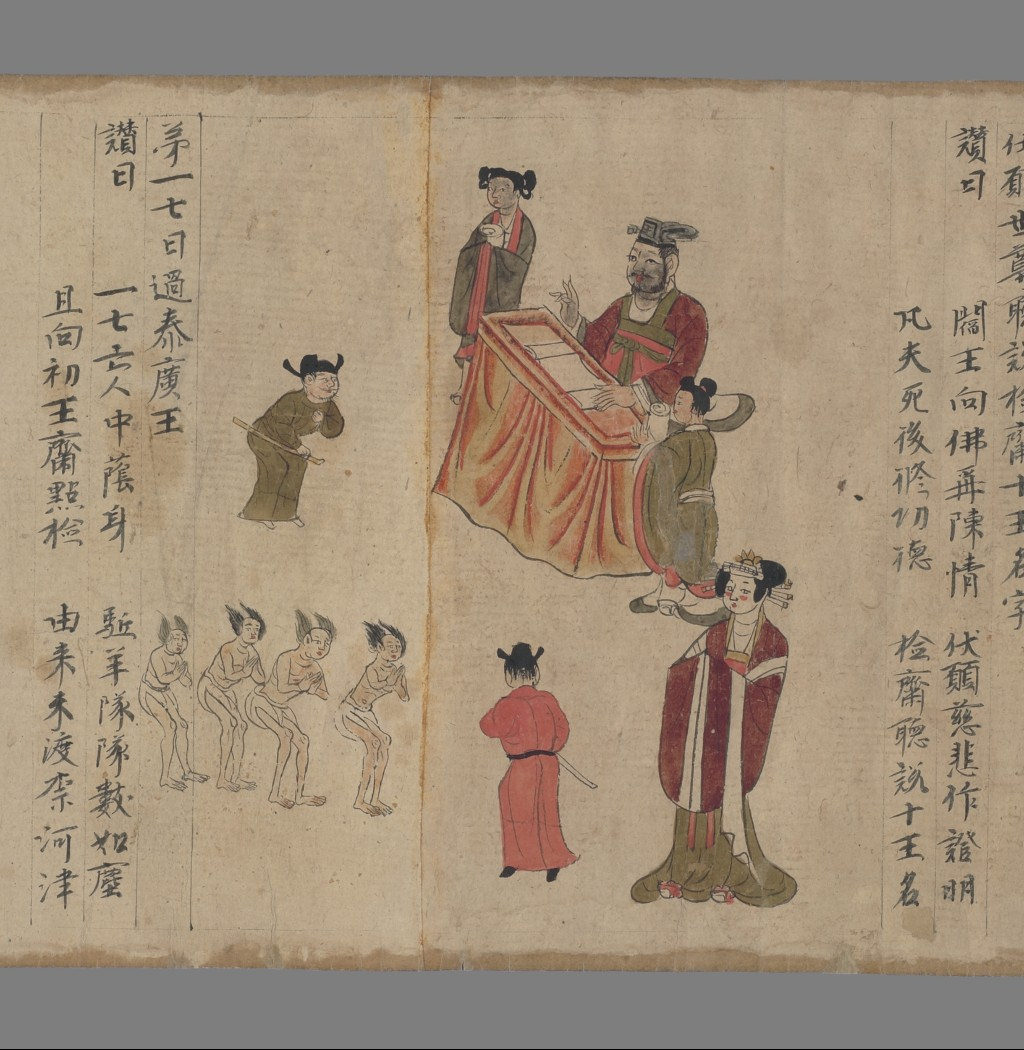 伏願世尊聽説檢齋十王名字
讚曰 閻王向佛再陳情 伏願慈悲作證明
凡夫死後修功德 檢齋聽説十王名
苐一七日過秦廣王
讚曰 一七亡人中蔭身 駈羊隊隊數如塵
且向初王齋點檢 由来未渡柰河津